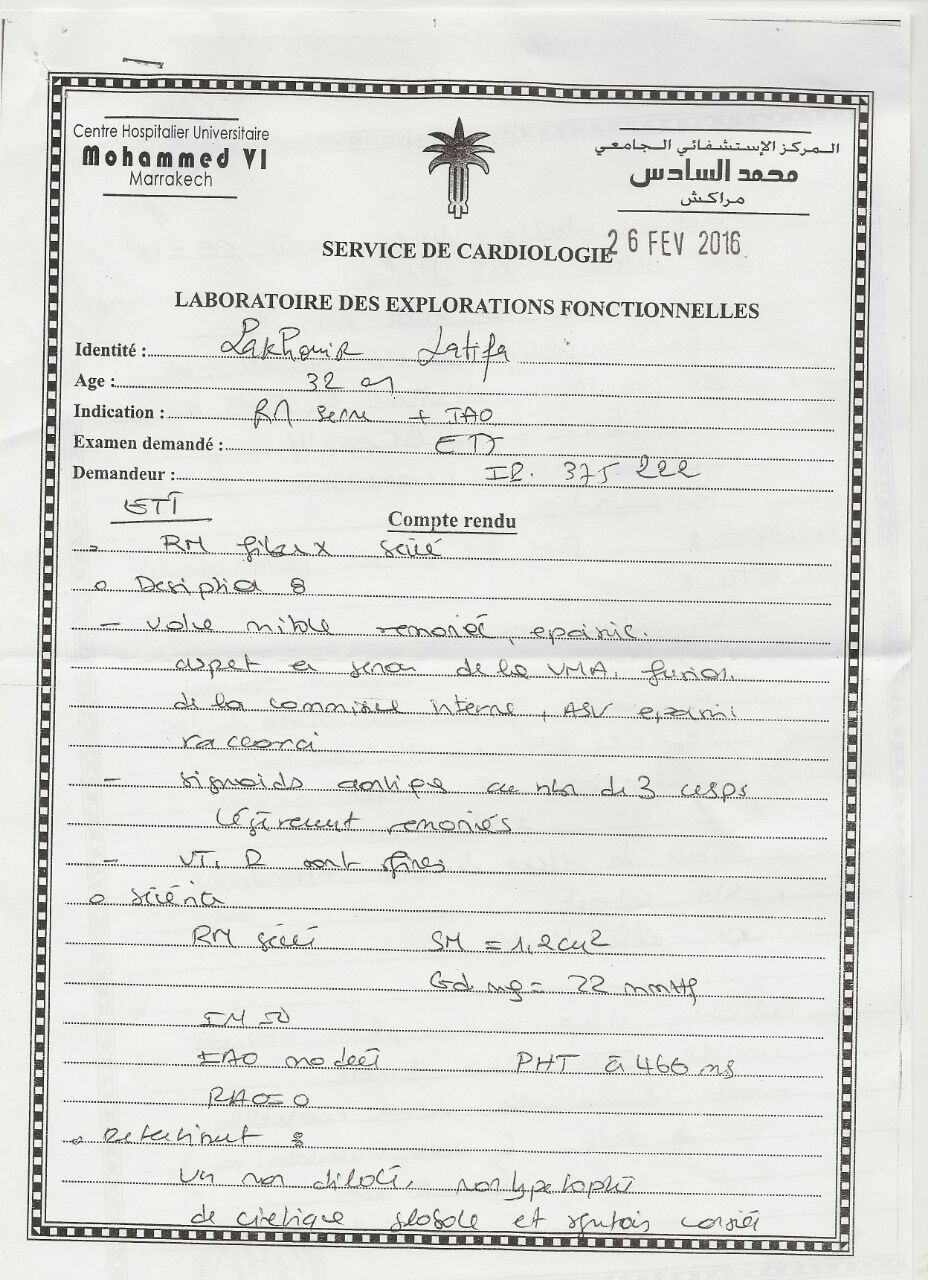 Centre Hospitalier Universitaire
Mohammed VI
Marrakech
المركز الإستشفائي الجامعي
محمد السادس
مراكش
SERVICE DE CARDIOLOGIE
26 FEV 2016
LABORATOIRE DES EXPLORATIONS FONCTIONNELLES
Identité : Lakhouir Latifa
Age : 32 an
Indication : RM serre + IAO
Examen demandé : ETT
Demandeur : IP. 375 222
ETT
Compte rendu
RM serré
- valve mitrale remaniée, epaissie.
aspect en de la VMA, fusion
de la commissure interne, ASV epaissi
raccourci
- sigmoids aortiques au nbr de 3 cusps
légèrement remaniés
- VT, P sont fines
RM serré SM = 1,2cm2
Gd mg = 22 mmHg
IAO PHT à 466 ms
RAO = 0
- retentissement :
VG non dilaté, non hypertrophié
de cinetique globale et conservé